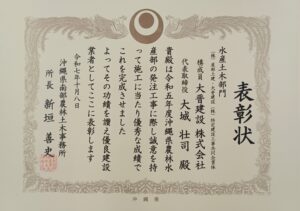 表彰状
水産土木部門
構成員 大晋建設 株式会社
代表取締役 大城 壮司 殿
貴殿は令和五年度沖縄県農林水
産部の発注工事に際し誠意を持
って施工に当たり優秀な成績で
これを完成させました
よってその功績を讃え優良建設
業者としてここに表彰します
令和七年十月八日
沖縄県南部農林土木事務所
所長 新垣 善史
沖縄県